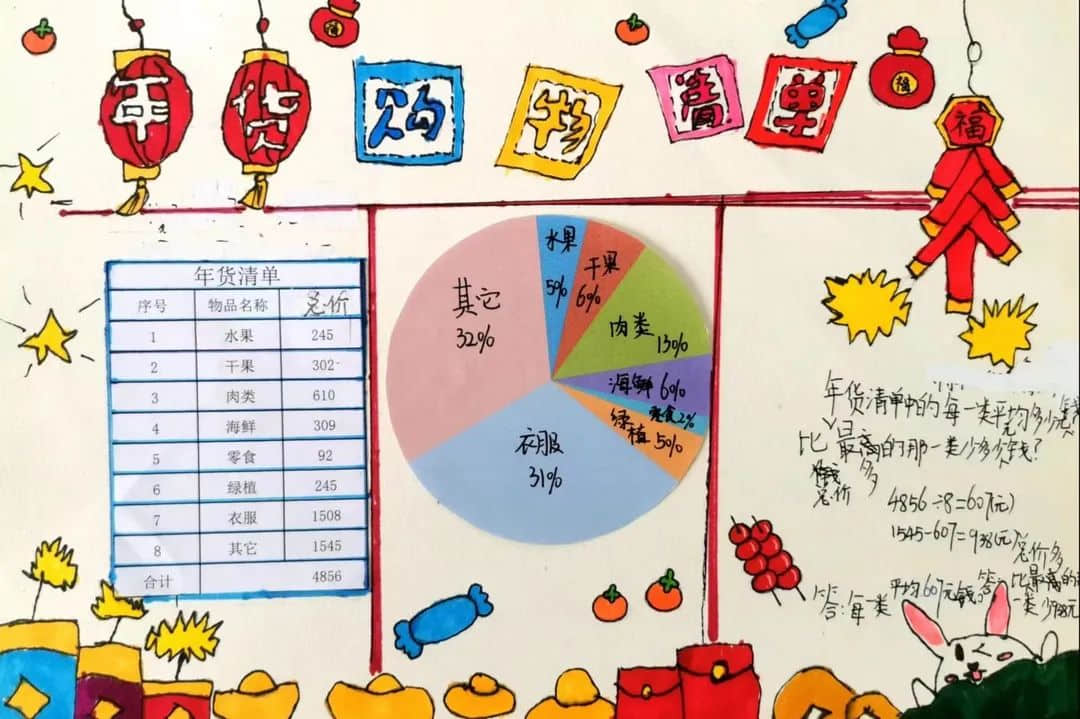 年货购物清单
福
福
年货清单
序号 物品名称 总价
1 水果 245
2 干果 302
3 肉类 610
4 海鲜 309
5 零食 92
6 绿植 245
7 衣服 1508
8 其它 1545
合计 4856
水果
5%
干果
6%
肉类
13%
海鲜 6%
零食2%
绿植 5%
衣服
31%
其它
32%
年货清单中的每一类平均多少元
比最高的那一类少多少钱?
总价 多
4856÷8=607(元)
1545-607=938(元)
总价多
答:每一类平均607元钱。答:比最高的
一类少938元